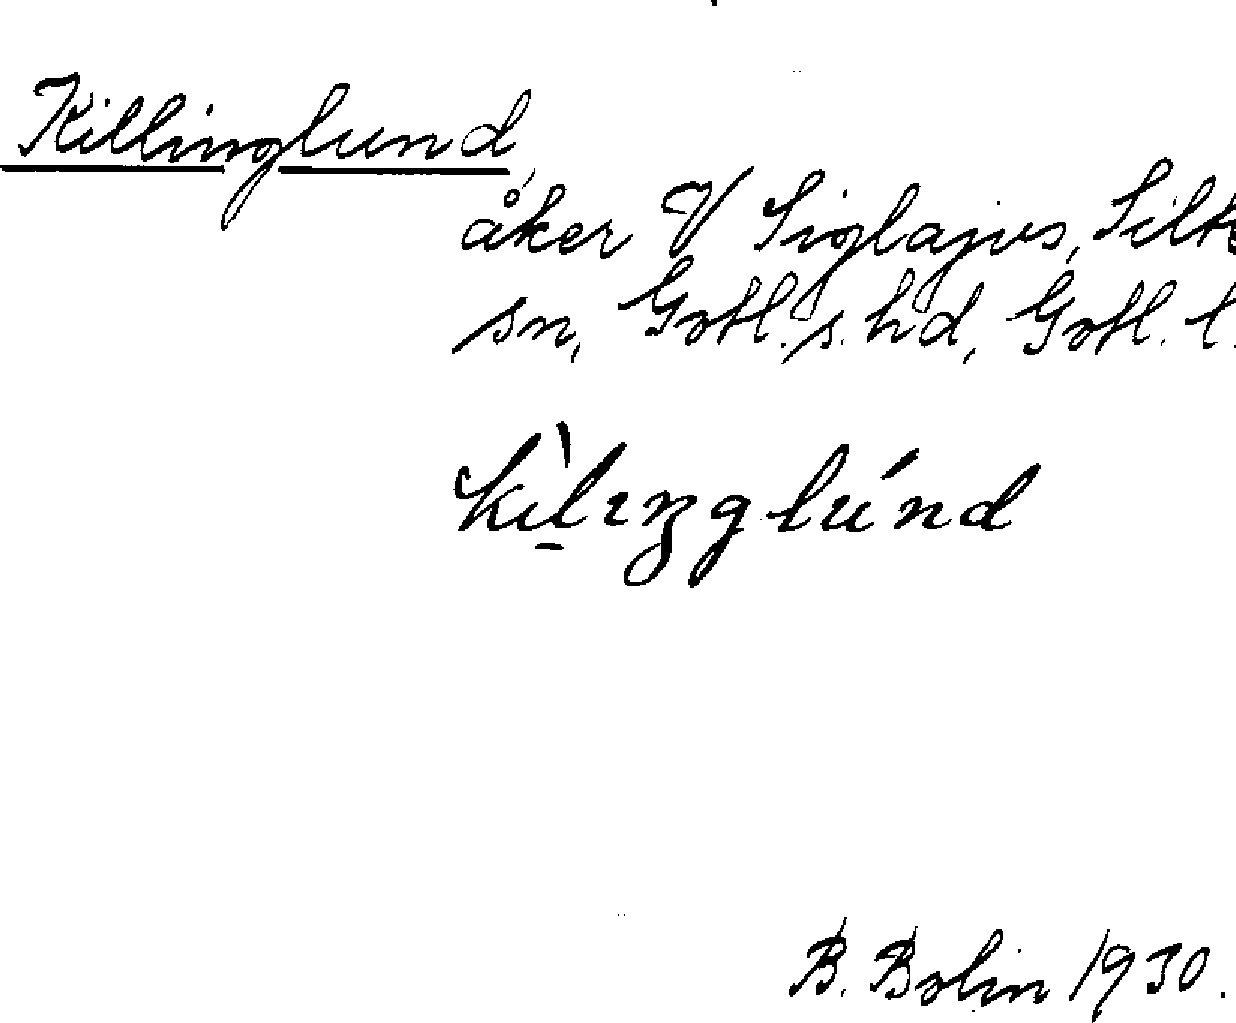 Killinglund,
åker V Siglajvs, Silte
sn, Gotl. s. hd, Gotl. l.
B. Bolin 1930.